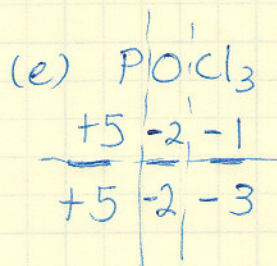 (e) POCl₃
+5 -2 -1
+5 -2 -3